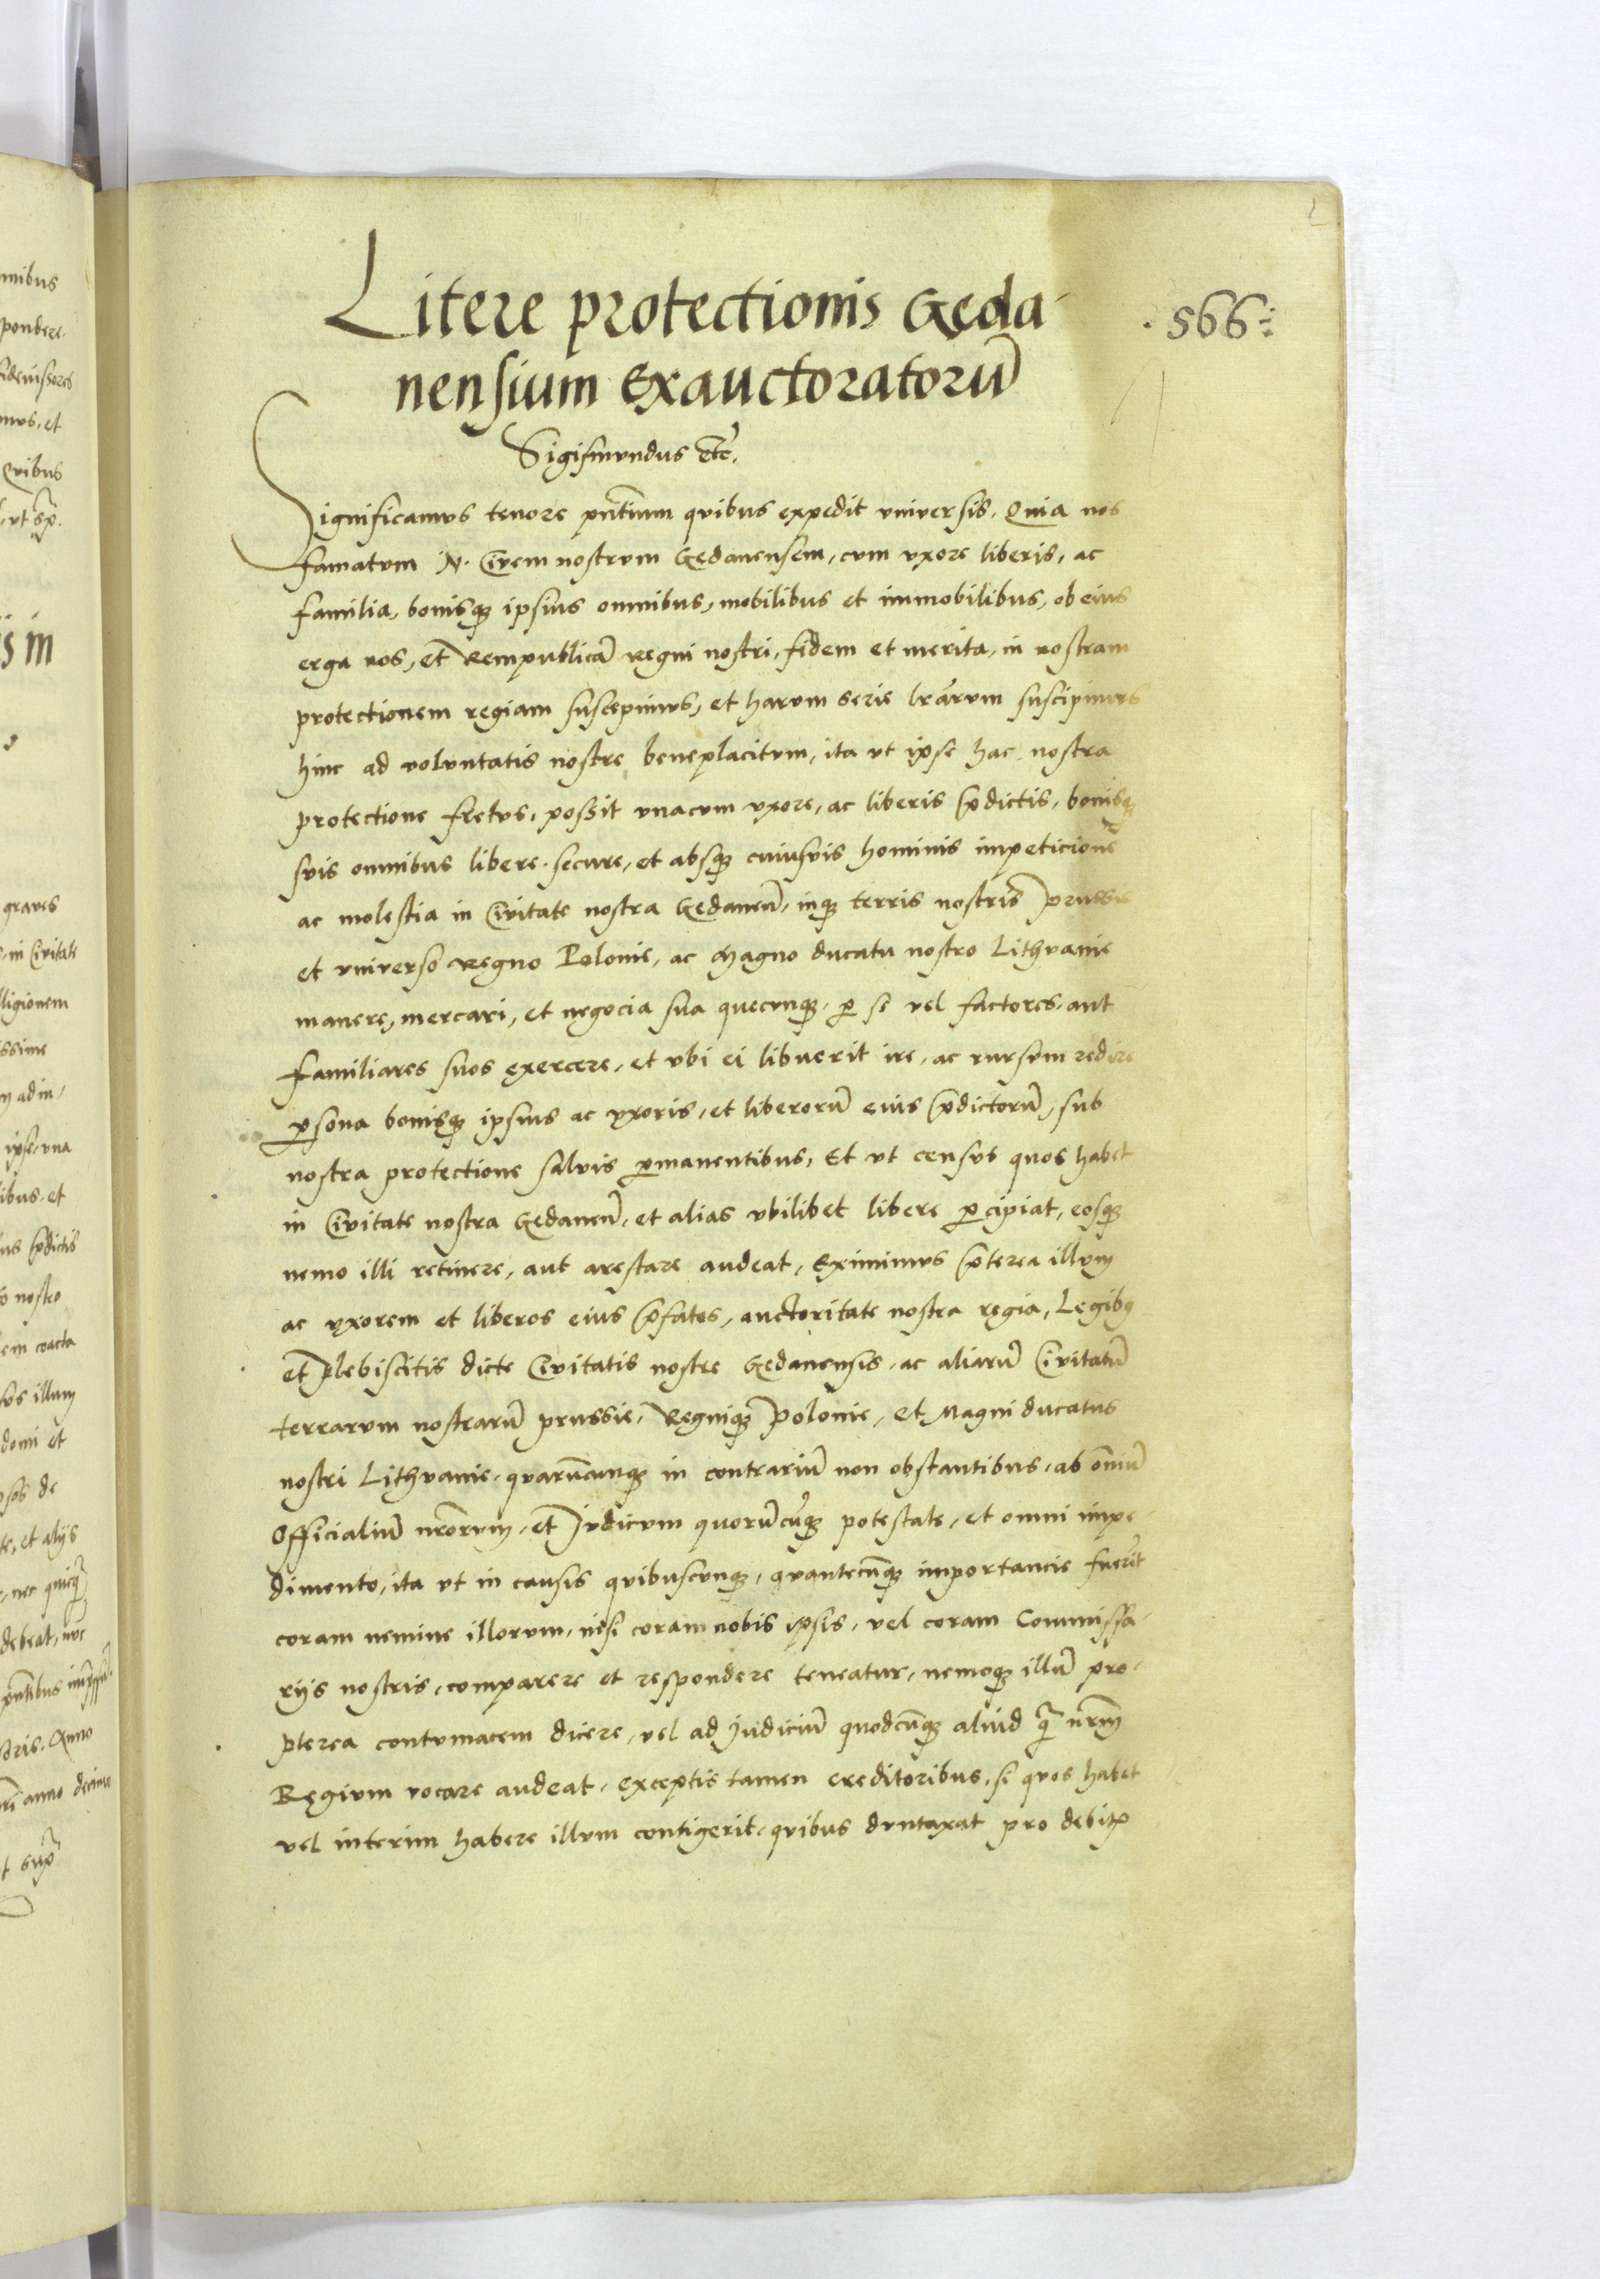 Litere protectionis Geda-
nensium Exauctoratorũ
.566.
Sigismundus etc̃.
Significamus tenore pñtium quibus expedit vniversis. Quia nos
famatum N. Civem nostrum Gedanensem, cum vxore liberis, ac
familia, bonisq́ꝫ ipsius omnibus, mobilibus et immobilibus, ob eius
erga nos, et Rempublicã Regni nostri, fidem et merita, in nostram
protectionem regiam suscepimus, et harum serie lr̃arum suscipimus
hinc ad voluntatis nostre beneplacitum, ita vt ipse hac nostra
protectione fretus, possit vnacum vxore, ac liberis p̃dictis, bonisqꝫ
suis omnibus libere, secure, et absqꝫ cuiusvis hominis impeticione
ac molestia in Civitate nostra Gedaneñ, inqꝫ terris nostris Prussie
et vniverso Regno Polonie, ac Magno ducatu nostro Lithvanie
manere, mercari, et negocia sua quecunqꝫ ꝑ se vel factores, aut
familiares suos exercere, et vbi ei libuerit ire, ac rursum redire
ꝑsona bonisqꝫ ipsius ac vxoris, et liberorũ eius p̃dictorũ, sub
nostra protectione salvis ꝑmanentibus, Et vt census quos habet
in Civitate nostra Gedaneñ, et alias vbilibet libere ꝑcipiat, eosqꝫ
nemo illi retinere, aut arestare audeat, Eximimus p̃terea illum
ac vxorem et liberos eius p̃fatos, auctoritate nostra regia, Legibꝫ
et Plebiscitis dicte Civitatis nostre Gedanensis, ac aliarũ Civitatũ
terrarum nostrarũ prussie, Regniqꝫ Polonie, et Magni ducatus
nostri Lithvanie, quarũcunqꝫ in contrariũ non obstantibus, ab om̃iũ
Officialiũ nr̃orum, et Judicum quorũcũqꝫ potestate, et omni impe-
dimento, ita vt in causis quibuscunqꝫ, quantecũqꝫ importancie fuer̃it
coram nemine illorum, nisi coram nobis ipsis, vel coram Commissa-
rijs nostris, comparere et respondere teneatur, nemoqꝫ illũ pro-
pterea contumacem dicere, vel ad Judiciũ quodcũqꝫ aliud q̃ nr̃m
Regium vocare audeat, exceptis tamen creditoribus, si quos habet
vel interim habere illum contigerit, quibus duntaxat pro debitꝭ